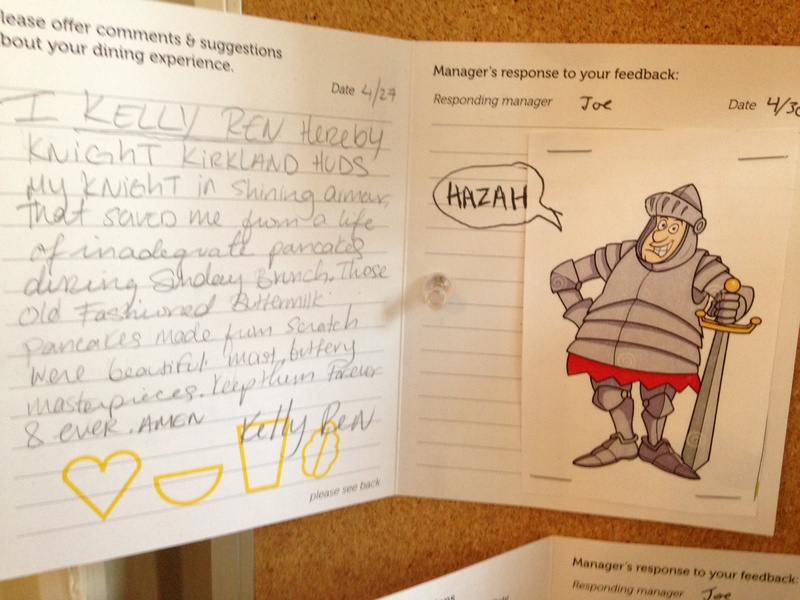 lease offer comments & suggestions
bout your dining experience.
Date 4/27
I KELLY REN Hereby
KNIGHT KIRKLAND HUDS
My KNIGHT in shining armour,
That saved me from a life
of inadequate pancakes
during Sunday Brunch. Those
Old Fashioned Buttermilk
pancakes made from scratch
were beautiful moist, buttery
masterpieces. Keep them forever
& ever. AMEN Kelly Ren
please see back
Manager's response to your feedback:
Responding manager Joe Date 4/30
HAZAH
Manager's response to your feedback:
Responding manager Joe